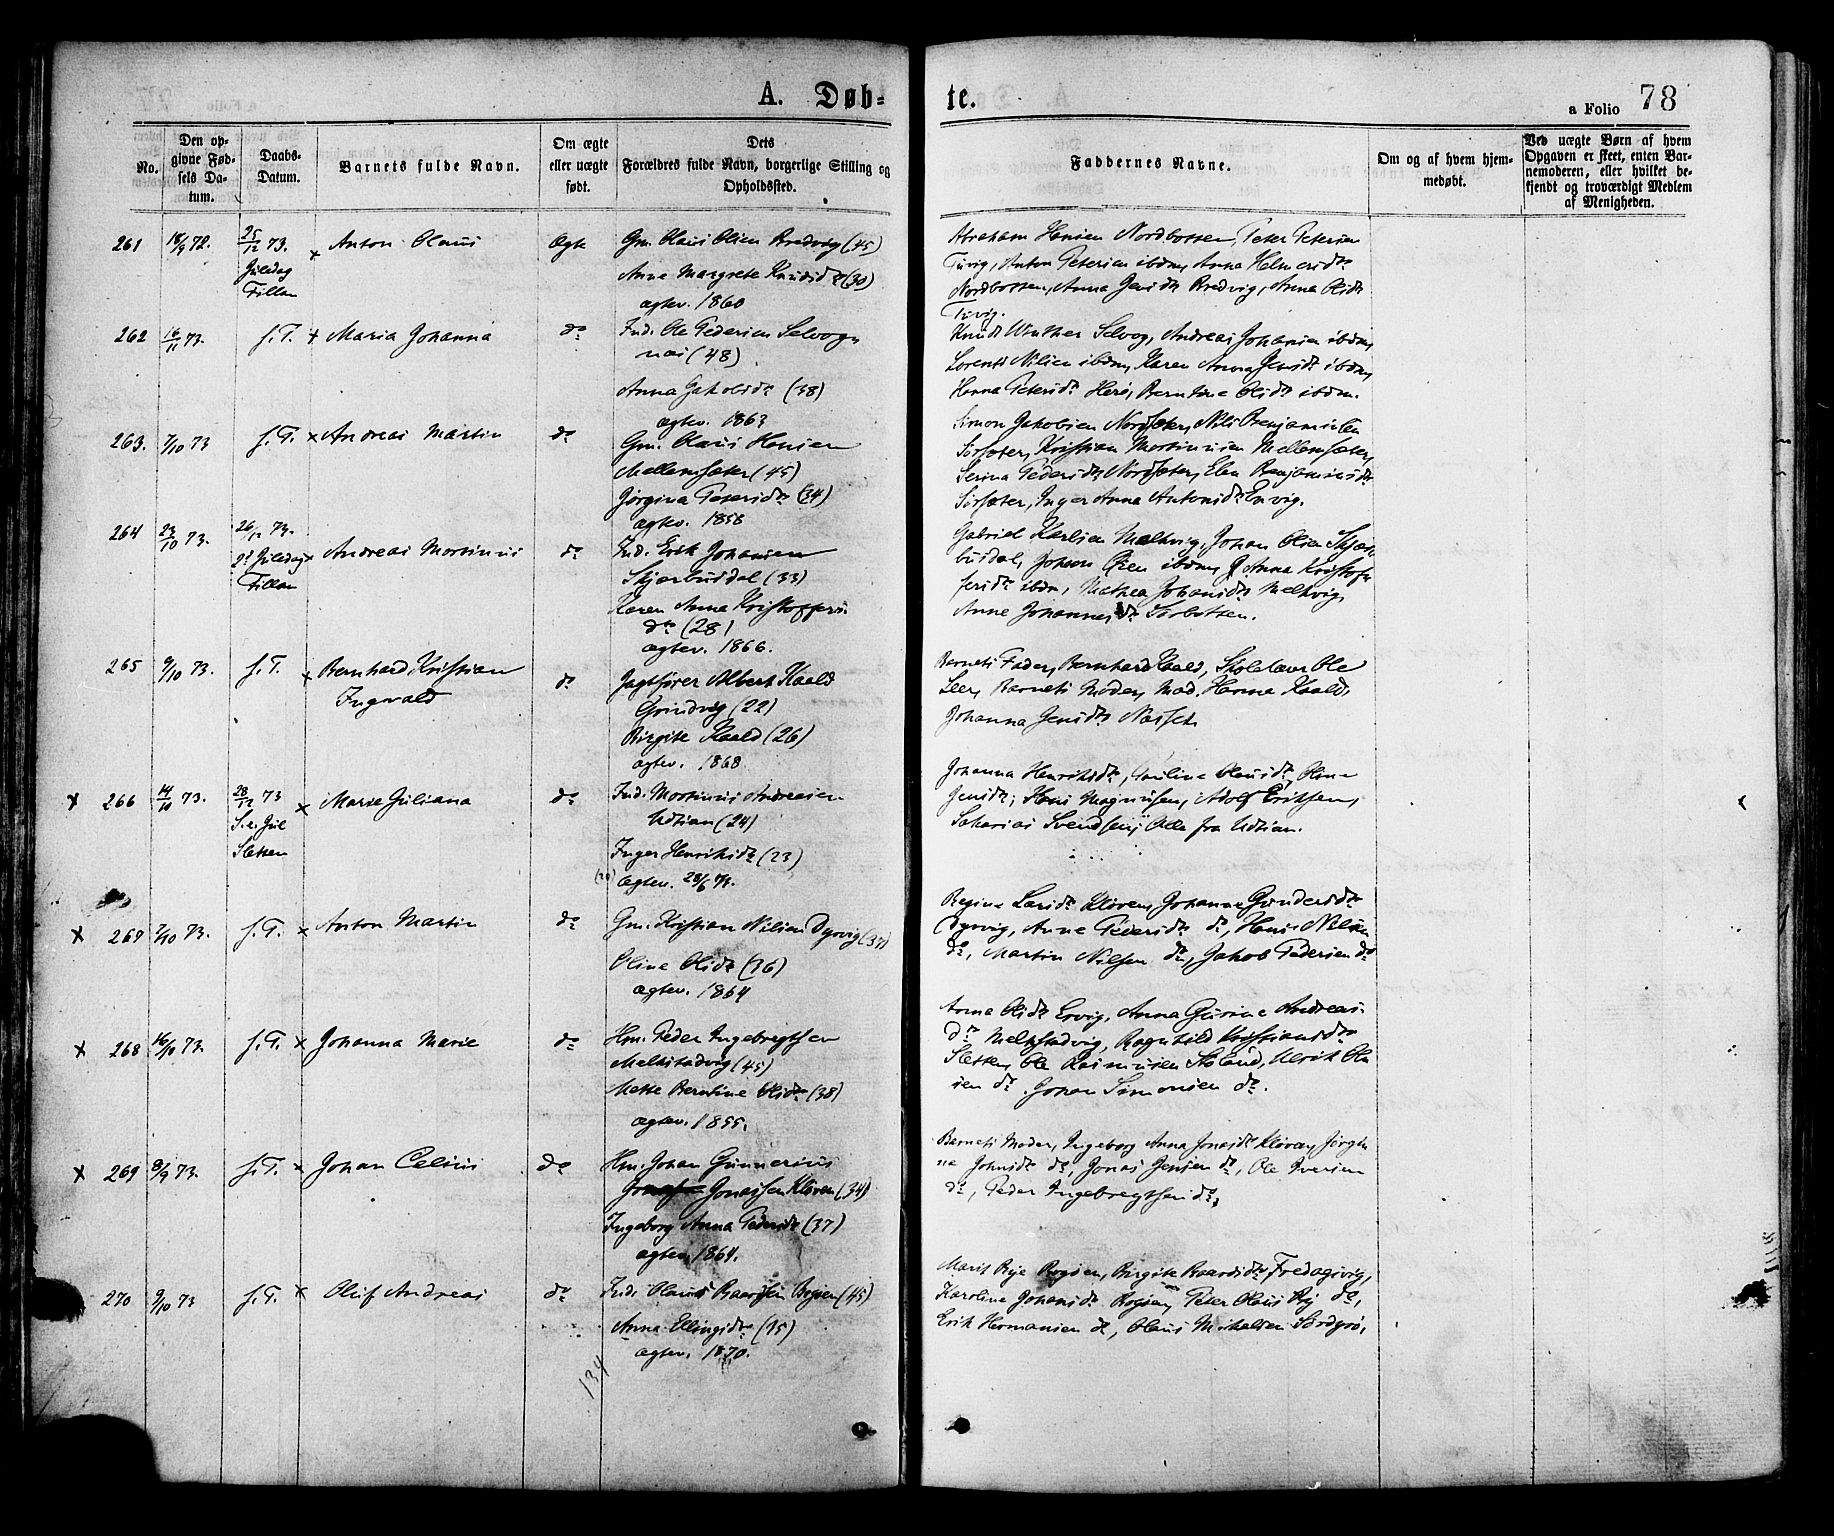 A. Døb-
te.
a Folio 78
No.
Den op-
givne Fød-
sels Da-
tum.
Daabs-
Datum.
Barnets fulde Navn.
Om ægte
eller uægte
født.
Dets
Forældres fulde Navn, borgerlige Stilling og
Opholdssted.
Faddernes Navne.
Om og af hvem hjem-
medøbt.
Ved uægte Børn af hvem
Opgaven er skeet, enten Bar-
nemoderen, eller hvilket be-
kjendt og troværdigt Medlem
af Menigheden.
261 18/9 72. 25/12 73. Juledag Fillan x Anton Olaus Ægte
Gm. Olaus Olsen Bredvig (45)
Anne Margrete Knudsdr (30)
ægtev. 1860
Abraham Hansen Nordbotten, Peter Petersen
Tuvig, Anton Petersen ibdm, Anna Helmersdr
Nordbotten, Anna Jensdr Bredvig, Anna Olsdr
Tuvig.
262 16/11 73. s.T. x Maria Johanna do
Ind. Ole Pedersen Selvogn
næs (48)
Anna Jakobsdr (38)
ægtev. 1863
Knudt Winther Selvog, Andreas Johansen ibdm,
Lorents Nilsen ibdm, Karen Anna Jensdr ibdm,
Hanna Petersdr Herø, Berntine Olsdr ibdm.
263. 7/10 73 s.T. x Andreas Martin do
Gm. Olaus Hansen
Mellemsæter (45)
Jørgina Petersdr (34)
ægtev. 1858
Simon Jakobsen Nordsæter, Nils Benjaminsen
Sørsæter, Kristian Mortinusen Mellemsæter,
Serina Pedersdr Nordsæter, Elen Benjaminsdr
Sørsæter, Inger Anna Antonsdr Envig.
264 23/10 73. 26/12 73. 2d Juledag Fillan x Andreas Mortinus do
Ind. Erik Johansen
Skjærbusdal (33)
Karen Anna Kristoffers-
dr (28)
ægtev. 1866.
Gabriel Karlsen Melkvig, Johan Olsen Skjær-
busdal, Johan Olsen ibdm, Anna Kristof-
fersdr ibdm, Mathea Johansdr Melkvig,
Anne Johannesdr Sørbotten.
265 9/10 73. s.T. x Bernhard Kristian
Ingvald do
Jagtfører Albert Kaald
Grindvig (22)
Birgite Kaald (26)
ægtev. 1868
Barnets Fader, Bernhard Kaald, Skolelærer Ole
Leer, Barnets Moder, Mad. Hanna Kaald,
Johanna Jensdr Næsset.
x 266 14/10 73. 28/12 73 S. e. Jul Sletten x Marie Juliana do
Ind. Mortinus Andreasen
Udtian (24)
Inger Henriksdr (23)
ægtev. 28/6 73.
Johanna Henriksdr, Pauline Olausdr, Oline
Jensdr, Hans Magnusen, Adolf Eriksen,
Sakarias Svendsen, Alle fra Udtian.
x 267 7/10 73. s.T. x Anton Martin do
Gm. Kristian Nilsen Dyrvig (37)
Oline Olsdr (36)
ægtev. 1864
Regine Larsdr Kløven, Johanna Gundersdr
Dyrvig, Anne Pedersdr do, Hans Nilsen
do, Martin Nilsen do, Jakob Pedersen do
x 268 16/10 73. s.T. x Johanna Marie do
Hm. Peder Ingebregtsen
Melkstadvig (45)
Mette Berntine Olsdr (38)
ægtev. 1855.
Anna Olsdr Ervig, Anna Gurine Andreas-
dr Melkstadvig, Ragnhild Kristiansdr
Sletten, Ole Rasmusen Ulrik Ol-
sen do. Johan Simonsen do.
x 269 8/9 73. s.T. x Johan Celius do
Hm. Johan Gunnerius
Jonassen Kløven (34)
Ingeborg Anna Pedersdr (37)
ægtev. 1864.
Barnets Moder, Ingeborg Anna Jonasdr Kløven, Jørgi-
ne Johnsdr do, Jonas Jensen do, Ole Iversen
do, Peder Ingebregtsen do,
270 9/10 73 s.T. x Oluf Andreas do
Ind. Olaus Baardsen Bogøen (45)
Anna Ellingsdr (45)
ægtev. 1870.
Marit Bye Bogøen, Birgite Baardsdr Fredagsvig,
Karoline Johansdr Bogøen, Peter Olaus By do,
Erik Hermansen do, Olaus Mikalsen Sørdyrø,
134